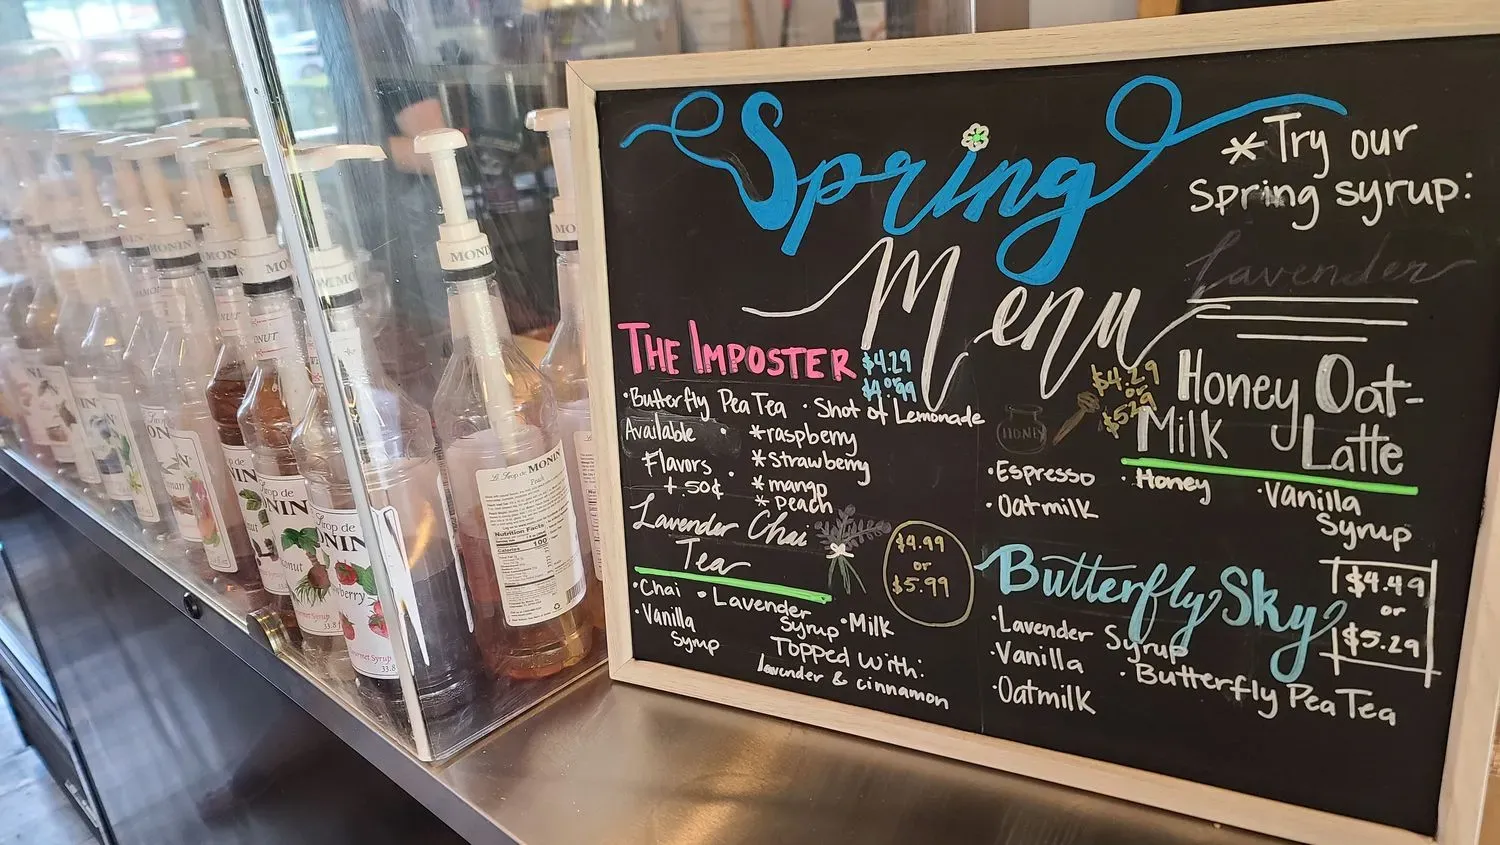 Spring
Menu
*Try our
Spring syrup:
Lavender
THE IMPOSTER
$4.29
or
$4.99
•Butterfly Pea Tea •Shot of Lemonade
Available
Flavors
+.50¢
*raspberry
*strawberry
*mango
*peach
Lavender Chai
Tea
$4.99
or
$5.99
•Chai •Lavender
Syrup •Milk
•Vanilla
Syrup
Topped with:
lavender & cinnamon
Honey Oat-
Milk Latte
$4.29
or
$5.29
HONEY
•Espresso •Honey •Vanilla
Syrup
•Oatmilk
Butterfly Sky
$4.49
or
$5.29
•Lavender Syrup
•Vanilla •Butterfly Pea Tea
•Oatmilk
MONIN
MONIN
Le Sirop de MONIN
Peach
Nutrition Facts
Calories 100